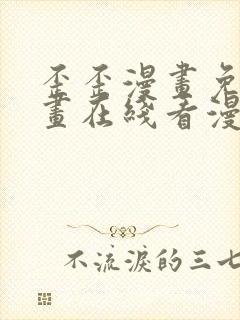 歪歪漫畫免
畫在线看漫
不流淚的三七